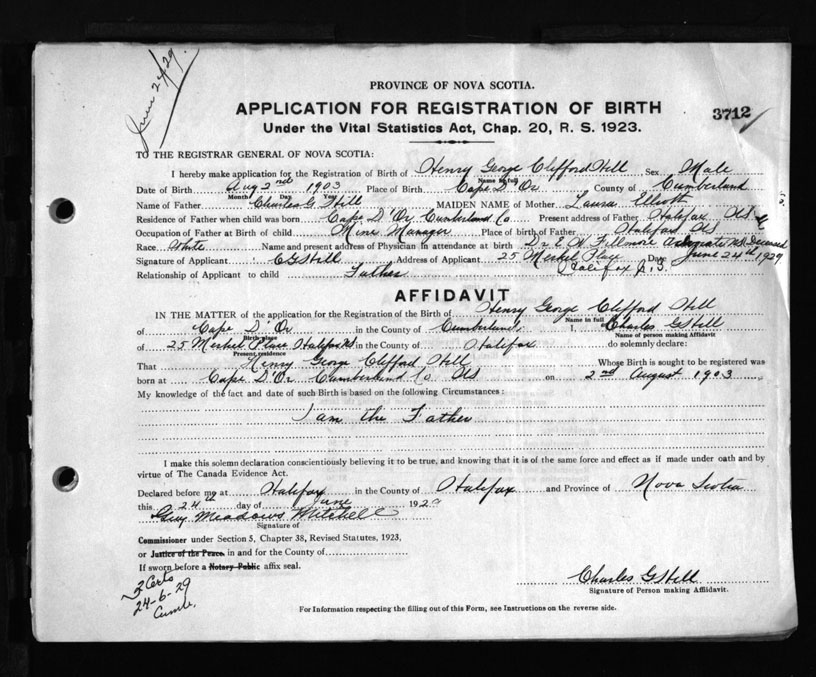 June 24/29.
PROVINCE OF NOVA SCOTIA.
APPLICATION FOR REGISTRATION OF BIRTH
3712
Under the Vital Statistics Act, Chap. 20, R. S. 1923.
TO THE REGISTRAR GENERAL OF NOVA SCOTIA:
I hereby make application for the Registration of Birth of Henry George Clifford Hill Sex Male
Name in full
Date of Birth Aug 2nd 1903 Place of Birth Cape D'Or County of Cumberland
Month Day Year
Name of Father Charles G Hill MAIDEN NAME of Mother Laura Elliott
Residence of Father when child was born Cape D'Or Cumberland Co Present address of Father Halifax NS
Occupation of Father at Birth of child Mine Manager Place of birth of Father Halifax NS
Race White Name and present address of Physician in attendance at birth Dr E. W. Fillmore NS Deceased
Signature of Applicant CG Hill Address of Applicant 25 Place Date June 24th 1929
Halifax N.S.
Relationship of Applicant to child Father
AFFIDAVIT
IN THE MATTER of the application of the Registration of the Birth of Henry George Clifford Hill
Name in full
of Cape D'Or in the County of Cumberland, I, Charles G Hill
Birth place
Name of person making Affidavit
of 25 Place Halifax NS in the County of Halifax do solemnly declare:
Present residence
That Henry George Clifford Hill Whose Birth is sought to be registered was
born at Cape D'Or Cumberland Co NS on 2nd August 1903
My knowledge of the fact and date of such Birth is based on the following Circumstances:
I am the Father
I make this solemn declaration conscientiously believing it to be true, and knowing that it is of the same force and effect as if made under oath and by
virtue of The Canada Evidence Act.
Declared before me at Halifax in the County of Halifax and Province of Nova Scotia
this 24th day of June 1929
Guy Meadows Mitchell
Signature of
Commissioner under Section 5, Chapter 38, Revised Statutes, 1923.
or Justice of the Peace in and for the County of
If sworn before a Notary Public affix seal.
3 Certs
24-6-29
Cumb.
Charles G Hill
Signature of Person making Affidavit.
For Information respecting the filling out of this Form, see Instructions on the reverse side.